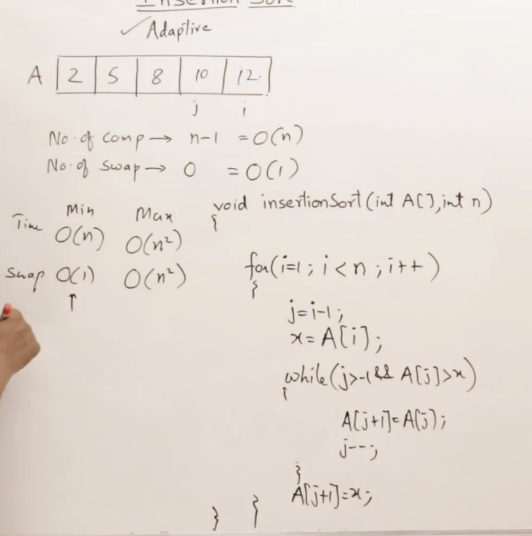 Insertion Sort
✓Adaptive
A 2 5 8 10 12
j i
No. of comp → n-1 = O(n)
No. of swap → 0 = O(1)
Min Max
Time O(n) O(n²)
Swap O(1) O(n²)
↑
void insertionSort(int A[], int n)
{
for(i=1; i<n; i++)
{
j=i-1;
x=A[i];
while(j>-1 && A[j]>x)
{
A[j+1]=A[j];
j--;
}
A[j+1]=x;
} }